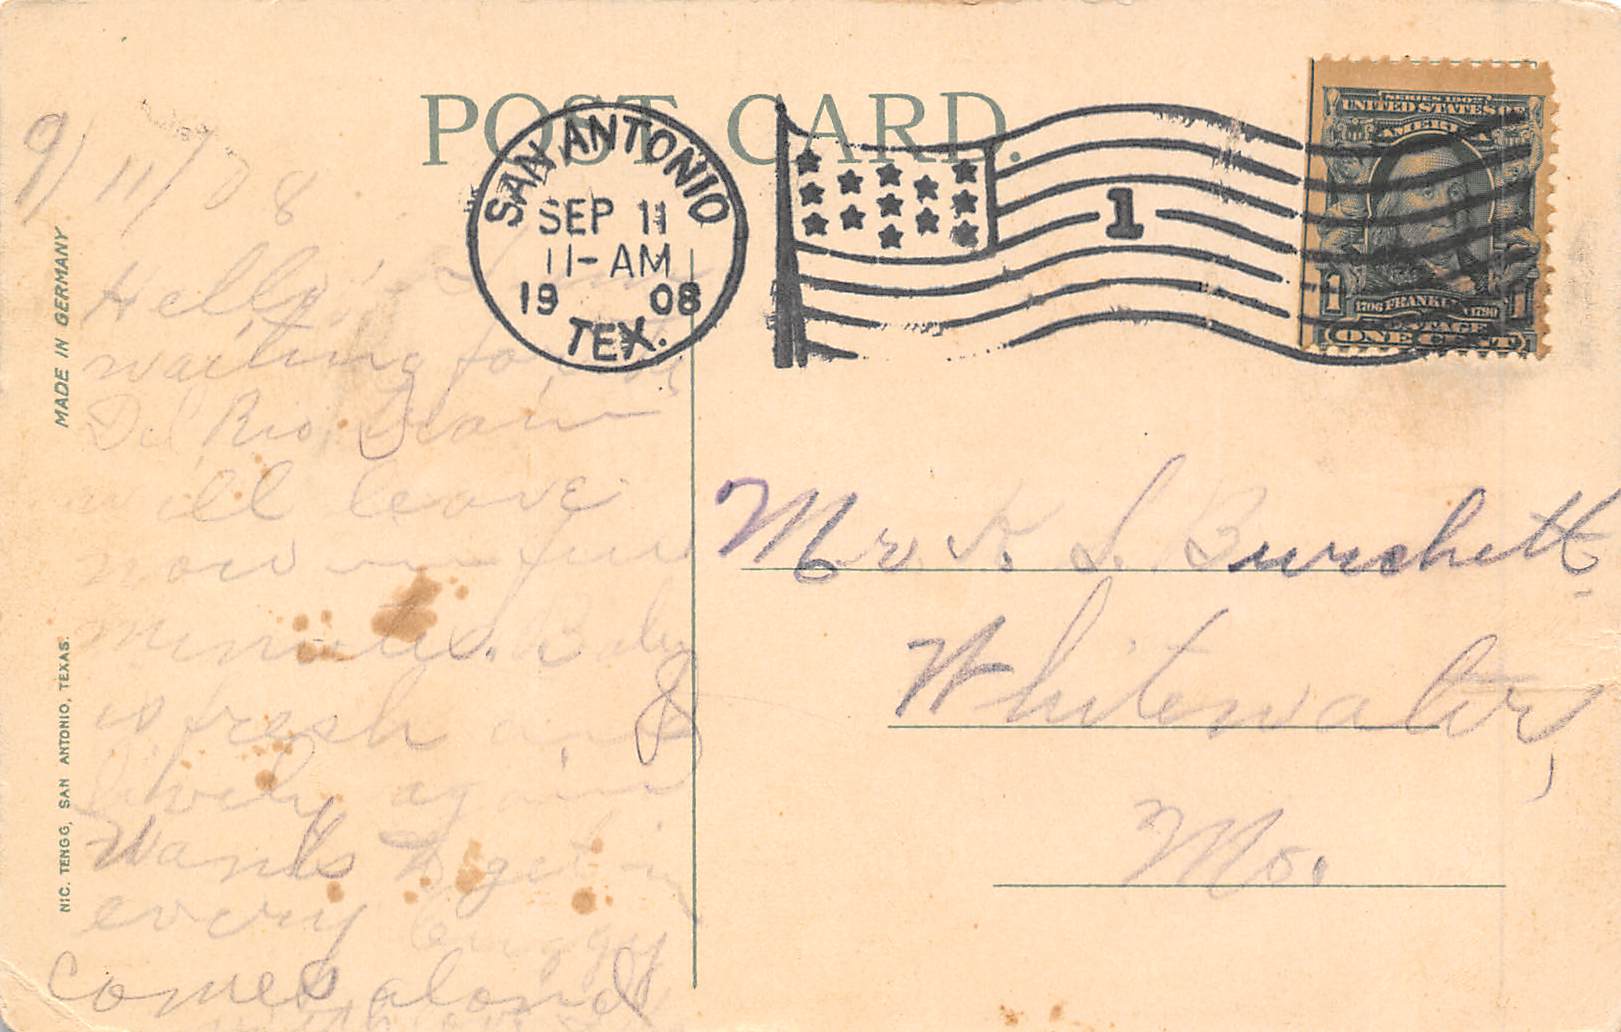 POST CARD.
SAN ANTONIO
SEP 11
11-AM
19 08
TEX.
1
SERIES 1902
UNITED STATES OF
AMERICA
1 1
1706 FRANKLIN 1790
POSTAGE
ONE CENT
MADE IN GERMANY.
NIC. TENGG, SAN ANTONIO, TEXAS.
9/11/08
Hello
waiting for
Del Rio, train
will leave
now in few
minutes. Baby
is fresh and
lively again
Wants to get in
every buggy
comes along
Mr. K. S. Burchett
Whitewater,
Mo.